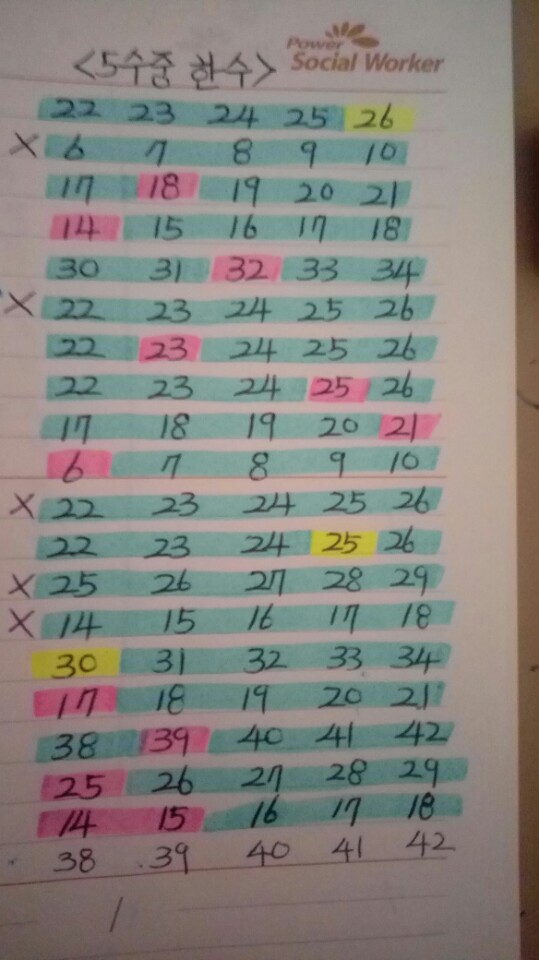 Power
Social Worker
<5수중 한수>
22 23 24 25 26
X 6 7 8 9 10
17 18 19 20 21
14 15 16 17 18
30 31 32 33 34
X 22 23 24 25 26
22 23 24 25 26
22 23 24 25 26
17 18 19 20 21
6 7 8 9 10
X 22 23 24 25 26
22 23 24 25 26
X 25 26 27 28 29
X 14 15 16 17 18
30 31 32 33 34
17 18 19 20 21
38 39 40 41 42
25 26 27 28 29
14 15 16 17 18
38 39 40 41 42
/